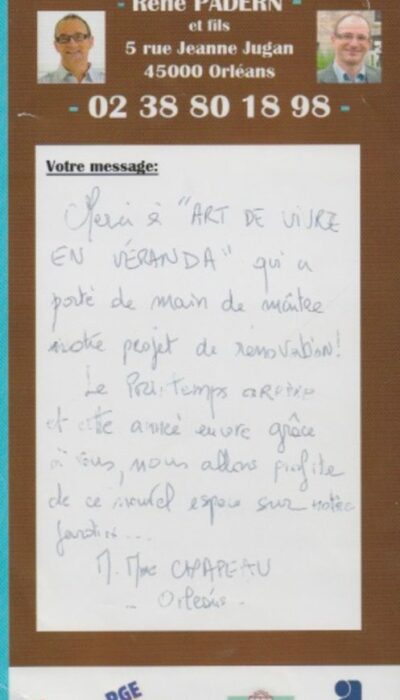 - René PADERN -
et fils
5 rue Jeanne Jugan
45000 Orléans
- 02 38 80 18 98 -
Votre message:
Merci à "ART DE VIVRE
EN VÉRANDA" qui a
porté de main de maître
notre projet de rénovation!
Le Printemps arrive
et cette année encore grâce
à vous, nous allons profiter
de ce nouvel espace sur notre
jardin...
M. Mme CHAPEAU
- Orléans -
RGE